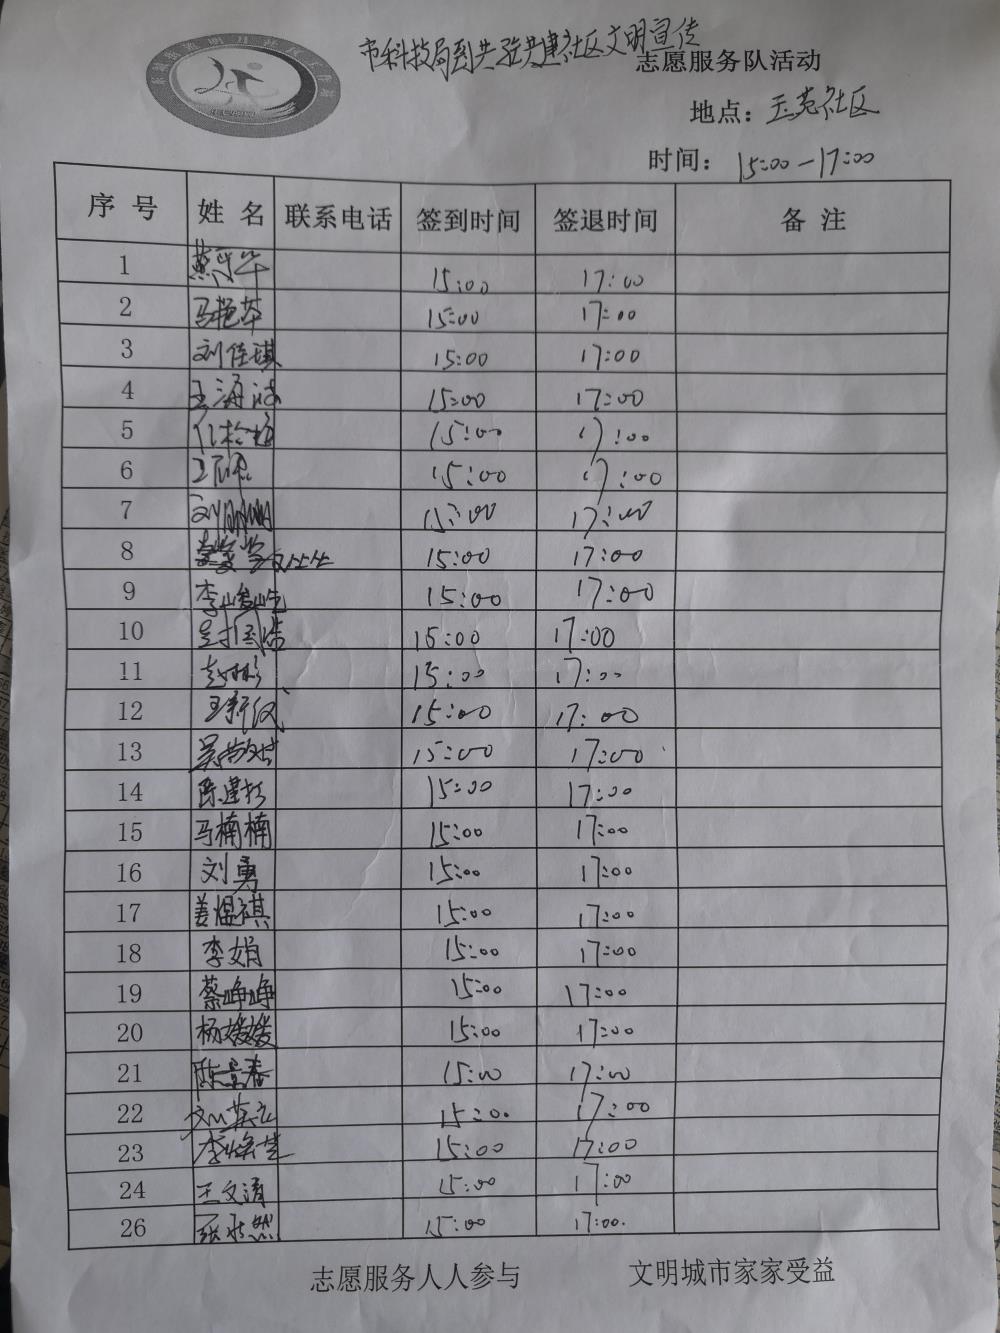 市科技局到共驻共建社区文明宣传
志愿服务队活动
地点：玉苑社区
时间：15:00-17:00
序号 姓名 联系电话 签到时间 签退时间 备注
1 15:00 17:00
2 马艳苹 15:00 17:00
3 刘佳琪 15:00 17:00
4 王海波 15:00 17:00
5 15:00 17:00
6 15:00 17:00
7 刘明明 15:00 17:00
8 15:00 17:00
9 李 15:00 17:00
10 15:00 17:00
11 赵彬 15:00 17:00
12 王新仪 15:00 17:00
13 吴 15:00 17:00
14 陈建杉 15:00 17:00
15 马楠楠 15:00 17:00
16 刘勇 15:00 17:00
17 姜愠祺 15:00 17:00
18 李娟 15:00 17:00
19 蔡峥峥 15:00 17:00
20 杨媛媛 15:00 17:00
21 陈景春 15:00 17:00
22 15:00 17:00
23 李 15:00 17:00
24 王文清 15:00 17:00
26 张 然 15:00 17:00.
志愿服务人人参与 文明城市家家受益